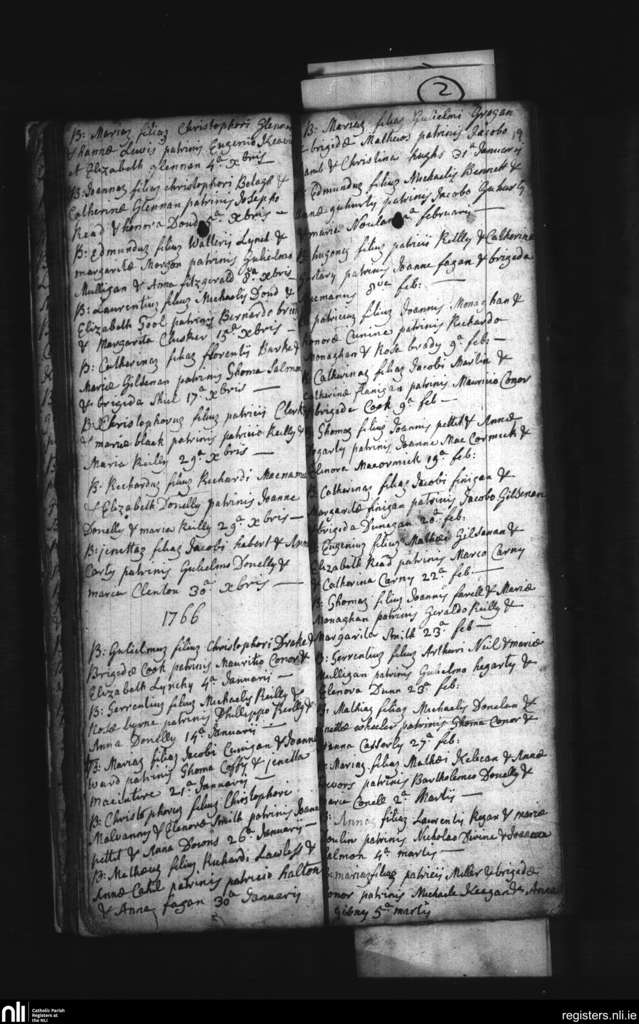 2
B: Mariaz filiaz Christophori Glenan
& hannæ Lewis patrinis Eugenio
et Elizabeth Glennan 4ª xbris
B: Joannaz filiaz Christophori &
Catherinæ Glennan patrinis Josepho
Read & honora Doud 5ª xbris
B: Edmunduz filiuz Walteris Lynch &
margaritæ Morgan patrinis Gulielmo
Mulligan & Anna fitzgerald 8ª xbris
B: Laurentiuz filiuz Michaelis Doud &
Elizabeth patrinis Bernardo
& Margarita Clusker 13ª xbris
B: Catherinaz filiaz florentis Burke &
Mariæ Gilsenan patrinis Thoma Salmon
& brigida Shiel 17ª xbris
B: Christophoruz filiuz patricii Clerk
& mariæ black patrinis patricio Reilly &
Maria Reilly 29ª xbris
B: Richarduz filiuz Richardi Macnama
& Elizabeth Donelly patrinis Joanne
Donelly & maria Reilly 29ª xbris
B: jenettaz filiaz Jacobi habert & Ann
Carty patrinis Gulielmo Donelly &
maria Clenton 30ª xbris
1766
B: Gulielmuz filiuz Christophori Drake &
Brigidæ Cook patrinis Mauritio Conor &
Elizabeth Lynchy 4ª Januarii
B: Terrentiuz filiuz Michaelis Reilly &
Rosæ byrne patrinis Phillippo Reilly &
Anna Donelly 14ª Januarii
B: Mariaz filiaz Jacobi Cunigan & Joanne
Ward patrinis Thoma Coffy & jenetta
21ª Januarii
B: Christophoruz filiuz Christophori
Malvanny & Elenoræ Smith patrinis Joanne
pettit & Anna Downs 26ª Januarii
B: Matheuz filiuz Richardi Lawless &
Annæ Cahil patrinis patricio halton
& Anna fagan 30ª Januarii
B: Mariaz filiaz Gulielmi Grogan
& brigidæ Mathews patrinis Jacobo
& Christina hughs 31ª Januarii
Edmunduz filiuz Michaelis Bennett &
patrinis Jacobo
maria Noulan februarii
hugonez filiuz patricii Reilly & Catherinæ
patrinis Joanne fagan & brigida
8va feb:
patriciuz filiuz Joannis Monaghan &
honoræ Cunine patrinis Richardo
Monaghan & Rose brady 9ª feb:
Catherinaz filiaz Jacobi Martin &
Catherinæ flanigan patrinis Mauritio Conor
brigida Cook 9ª feb
Thomaz filiuz Joannis pettit & Annæ
fogarty patrinis Joanne Mac Cormick &
Elenora Macormick 19ª feb:
Catherinaz filiaz Jacobi finigan &
Margaritæ finigan patrinis Jacobo Gilsenan
brigida Dunegan 20ª feb:
Eugeniuz filiuz Mathei Gilsenan &
Elizabeth Read patrinis Marco Carny
Catherina Carny 22ª feb
B: Thomaz filiuz Joannis farell & Mariæ
Monaghan patrinis Geraldo Reilly &
Margarita Smith 23ª feb
B: Terrentiuz filiuz Arthuri Neil & mariæ
Mulligan patrinis Gulielmo hegarty &
Elenora Dunn 25ª feb:
Mathiaz filiaz Michaelis Donelan &
wheeler patrinis Thoma Conor &
Casserly 27ª feb:
Mariaz filiaz Mathei Kelecan & Annæ
patrinis Bartholomeo Donelly &
maria Conell 2ª Martii
Annaz filiaz Laurentis Regan & mariæ
patrinis Nicholao Divine & Joanna
Salmon 4ª martii
mariaz filiaz patricii Miller & brigidæ
Conor patrinis Michaele Keagan & Anna
Gibney 5ª martii
nli
Catholic Parish
Registers at
the NLI
registers.nli.ie